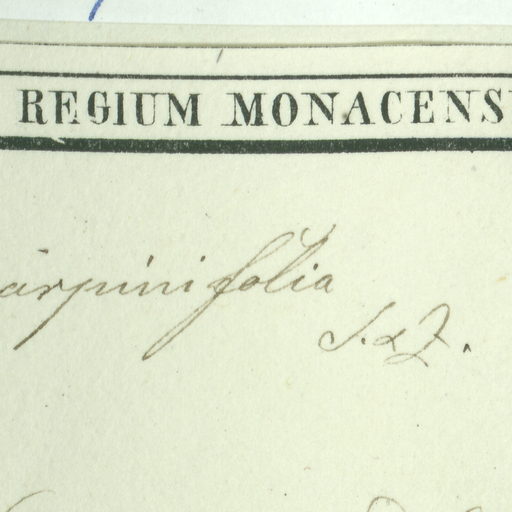 REGIUM MONACENS
arpinifolia
S. & Z.